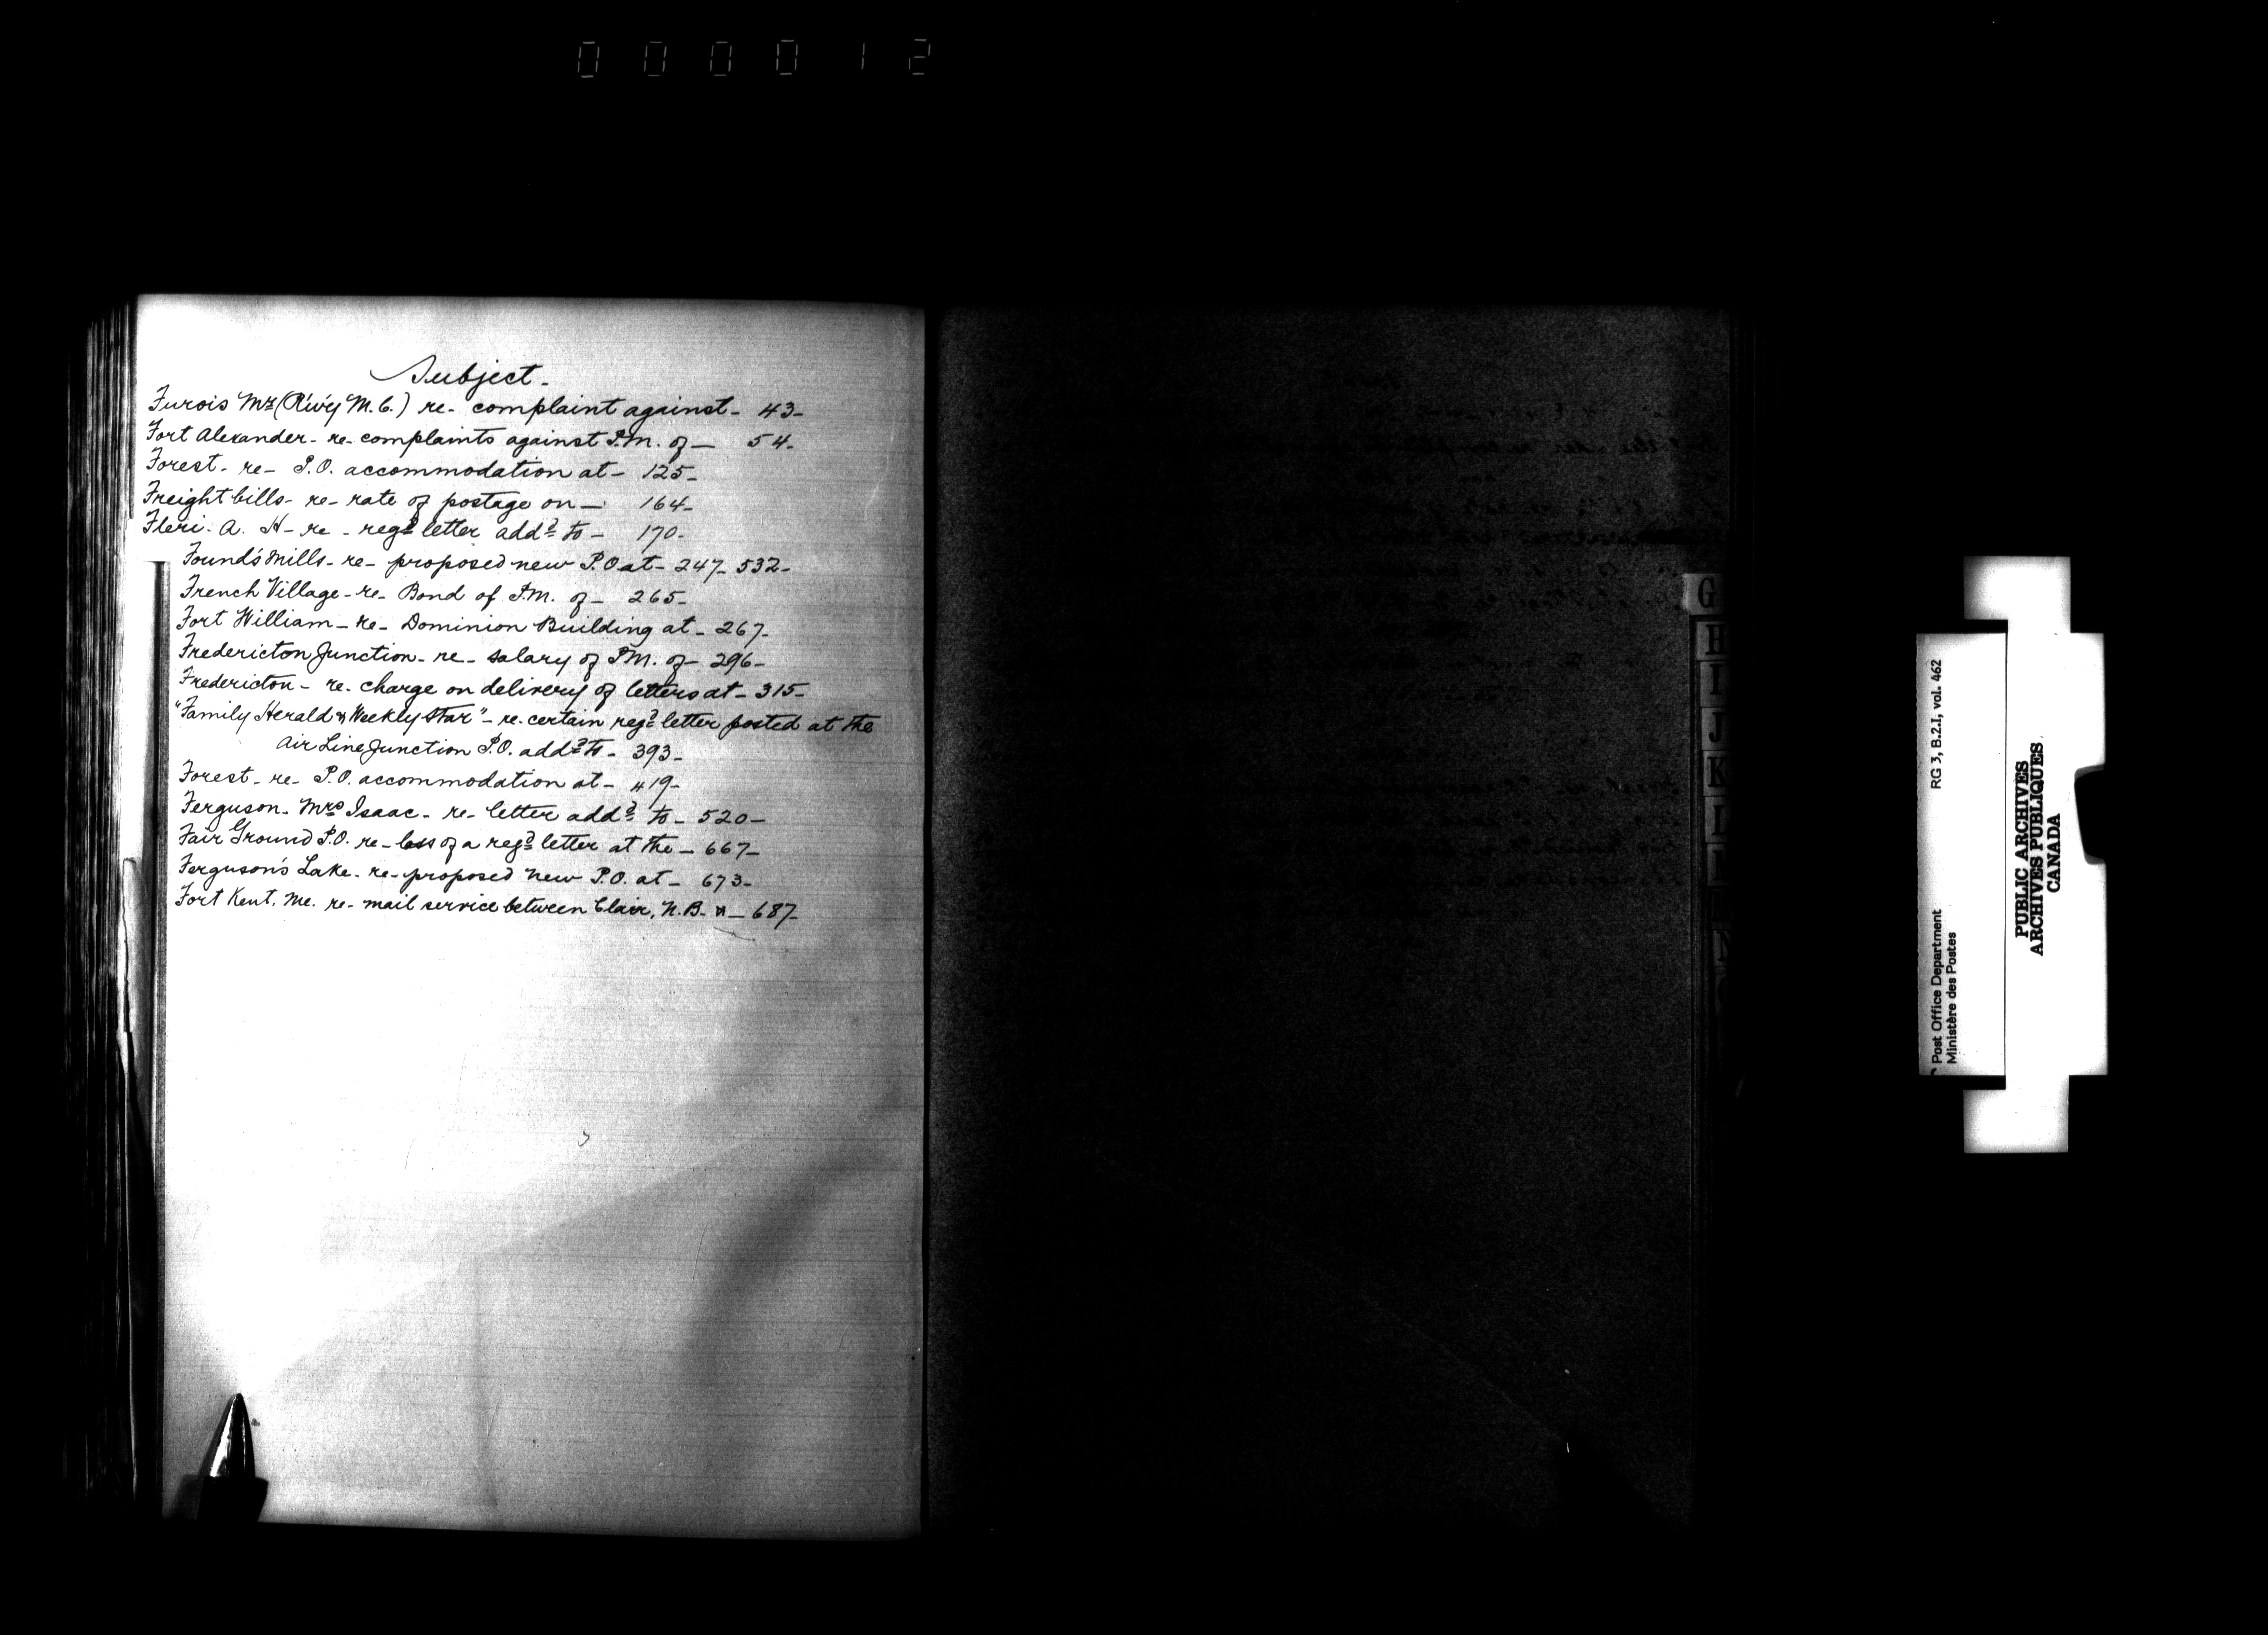 000012
Subject-
Furois Mr (R'w'y M.C.) re- complaint against- 43-
Fort Alexander- re- complaints against P.M. of- 54-
Forest- re- P.O. accommodation at- 125-
Freight bills- re- rate of postage on- 164-
Fleri. A. H- re- regd letter addd to- 170-
Found's Mills- re- proposed new P.O at- 247- 532-
French Village- re- Bond of P.M. of- 265-
Fort William- re- Dominion Building at- 267-
Fredericton Junction- re- salary of P.M. of- 296-
Fredericton- re- charge on delivery of letters at- 315-
"Family Herald & Weekly Star"- re- certain regd letter posted at the
Air Line Junction P.O. addd to- 393-
Forest- re- P.O. accommodation at- 419-
Ferguson- Mrs Isaac- re- letter addd to- 520-
Fair Ground P.O. re- loss of a regd letter at the- 667-
Ferguson's Lake- re- proposed new P.O. at- 673-
Fort Kent, Me. re- mail service between Clair, N.B. &- 687-
G
H
I
J
K
L
M
N
Post Office Department
Ministère des Postes
RG 3, B.2.I, vol. 462
PUBLIC ARCHIVES
ARCHIVES PUBLIQUES
CANADA